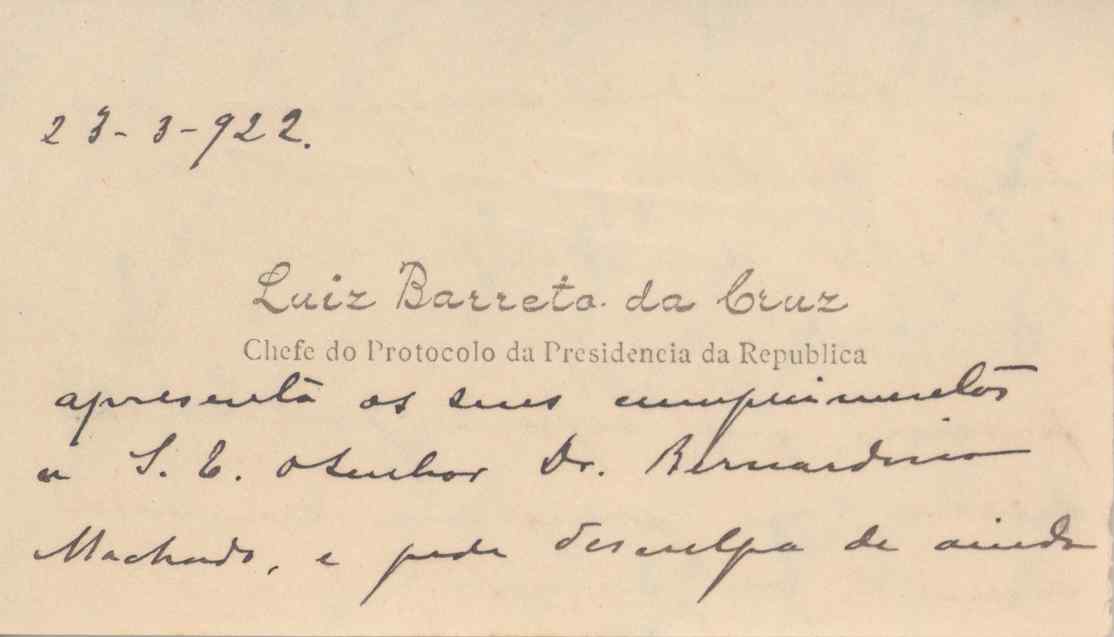 23-3-922.
Luiz Barreto da Cruz
Chefe do Protocolo da Presidencia da Republica
apresenta os seus cumprimentos
a S. E. o Senhor Dr. Bernardino
Machado, e pede desculpa de ainda